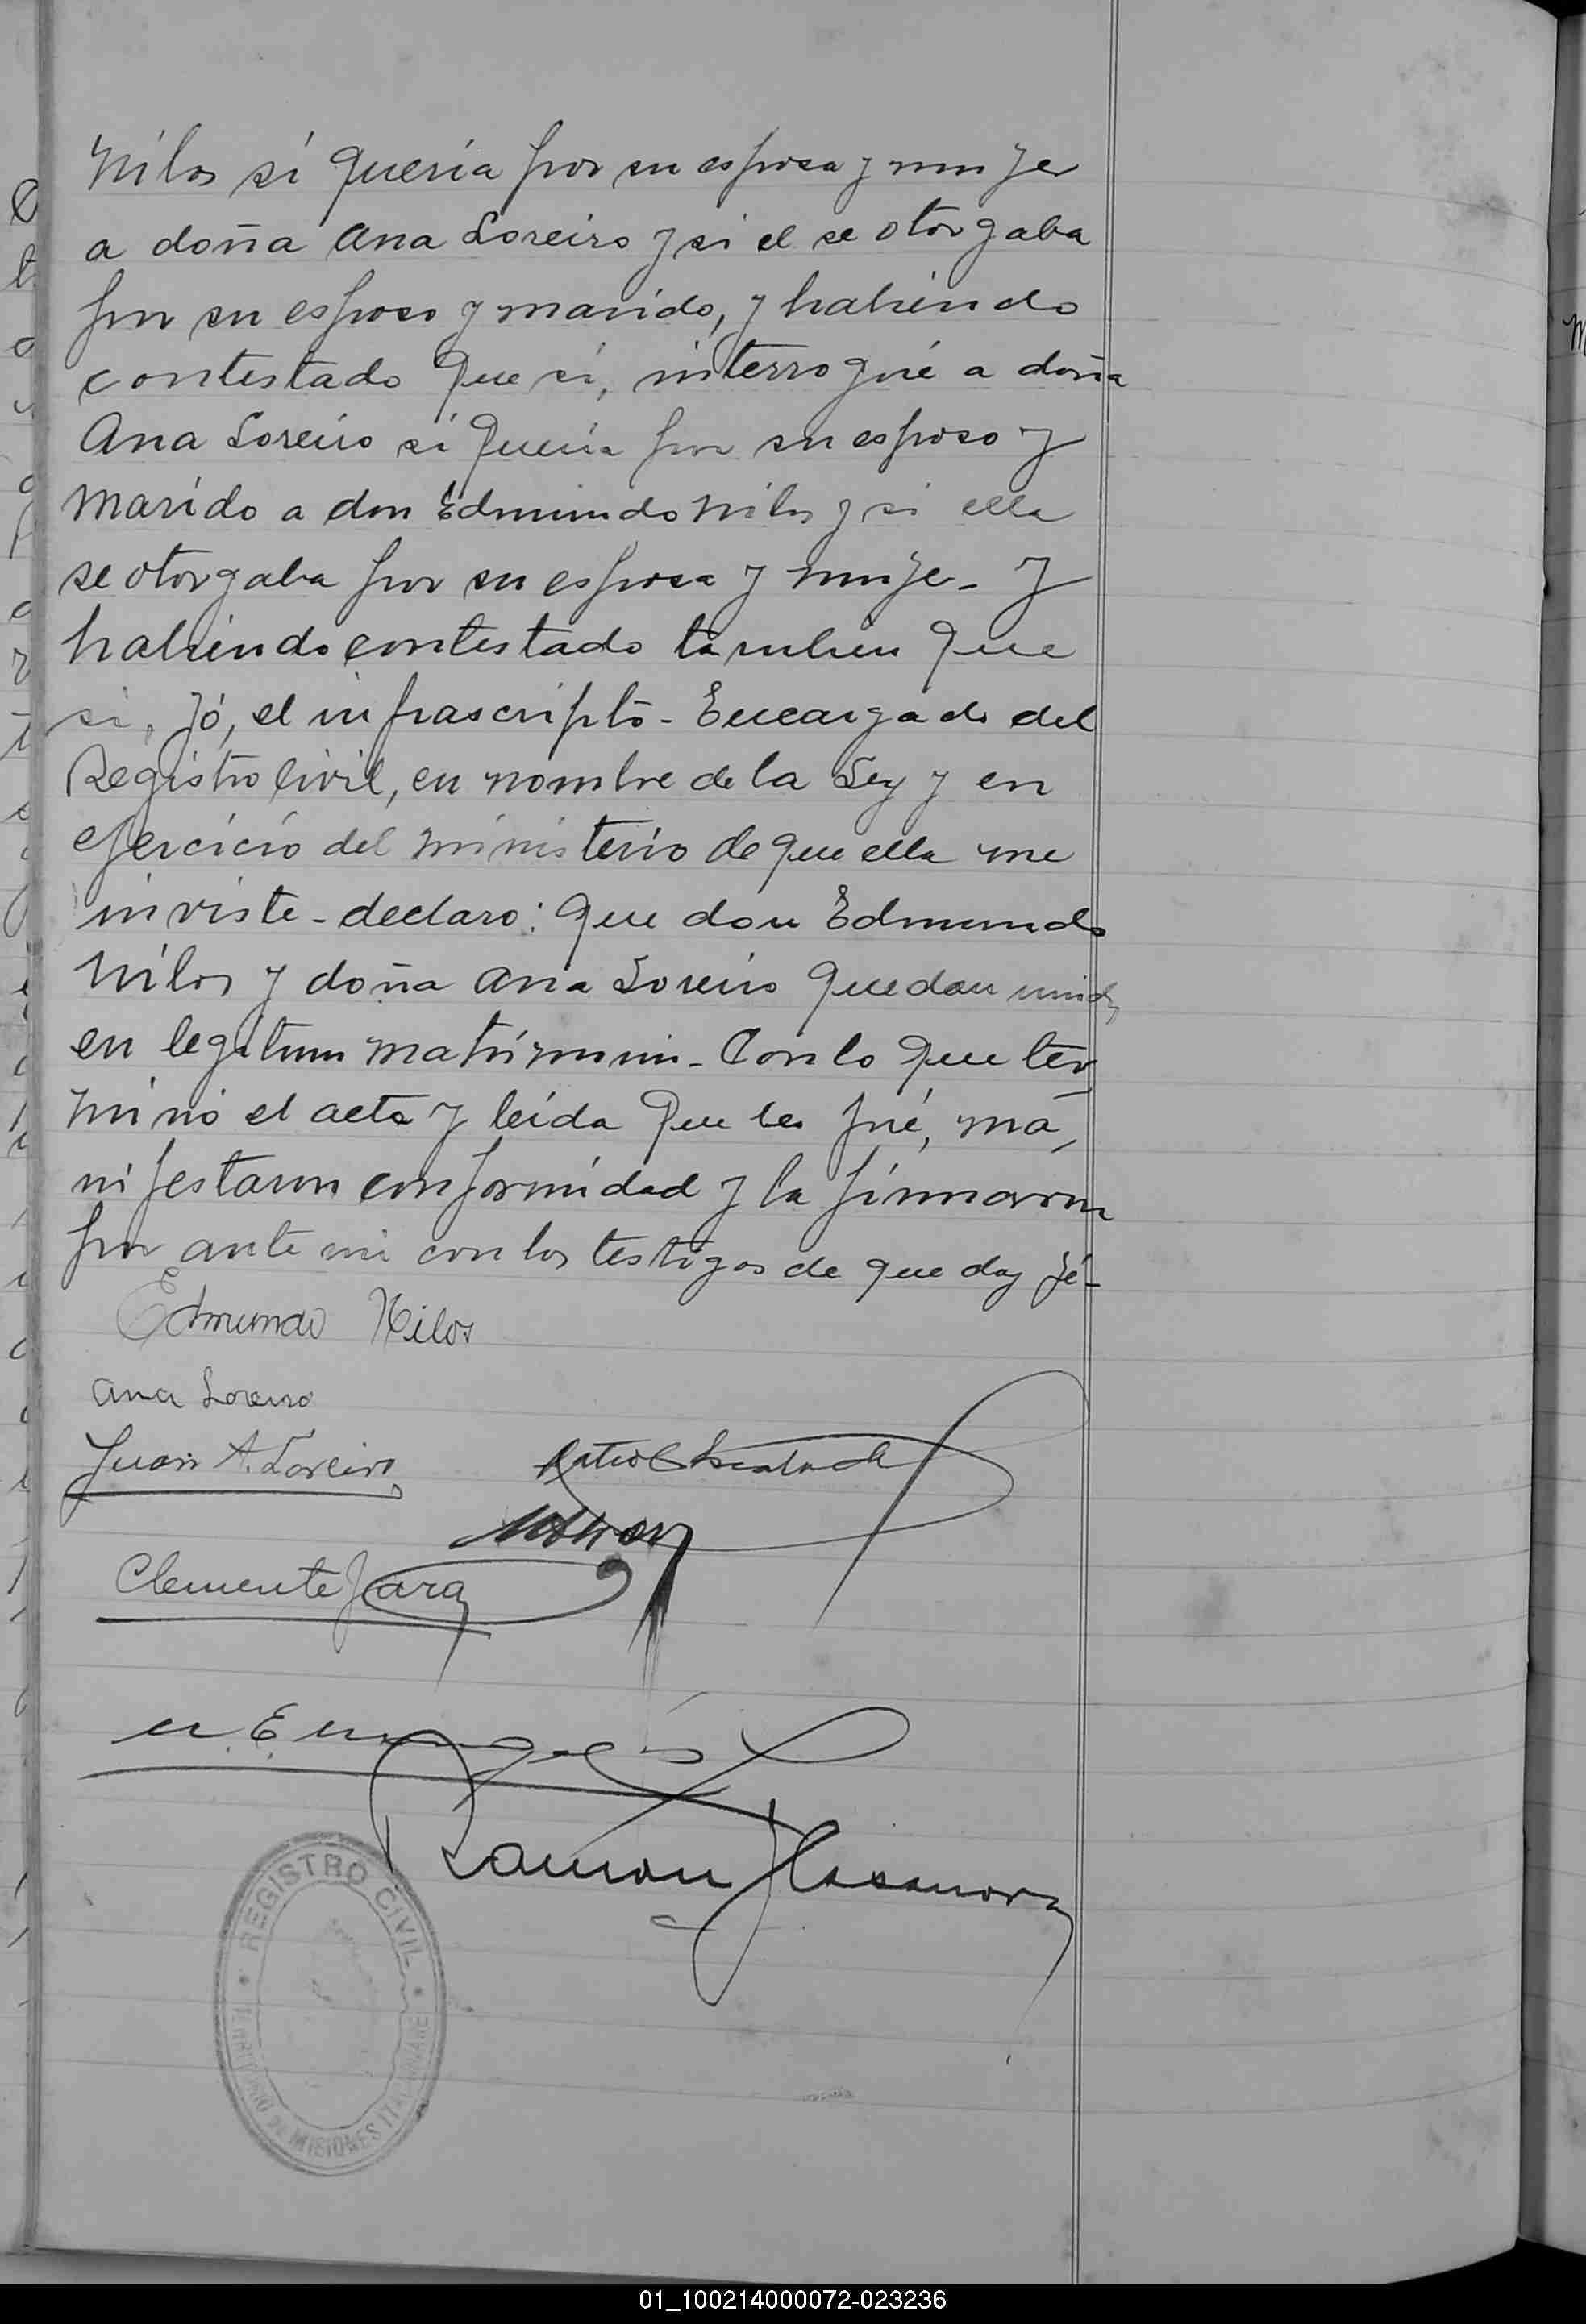 Nilos si quería por su esposa y mujer
a doña Ana Loreiro y si el se otorgaba
por su esposo y marido, y habiendo
contestado que sí, interrogué a doña
Ana Loreiro si quería por su esposo y
marido a don Edmundo Nilos y si ella
se otorgaba por su esposa y mujer - y
habiendo contestado tambien que
si, yó, el infrascripto - Encargado del
Registro Civil, en nombre de la Ley y en
ejercicio del ministerio de que ella me
inviste - declaro: que don Edmundo
Nilos y doña Ana Loreiro quedan unidos
en legítimo matrimonio - Con lo que ter
minó el acta y leida que les fué, ma,
nifestaron conformidad y la firmaron
por ante mi con los testigos de que doy fé -
Edmundo Nilos
Ana Loreiro
Juan A. Loreiro
Clemente Jara
Ramon Casanova
REGISTRO CIVIL
TERRITORIO DE MISIONES
01_100214000072-023236